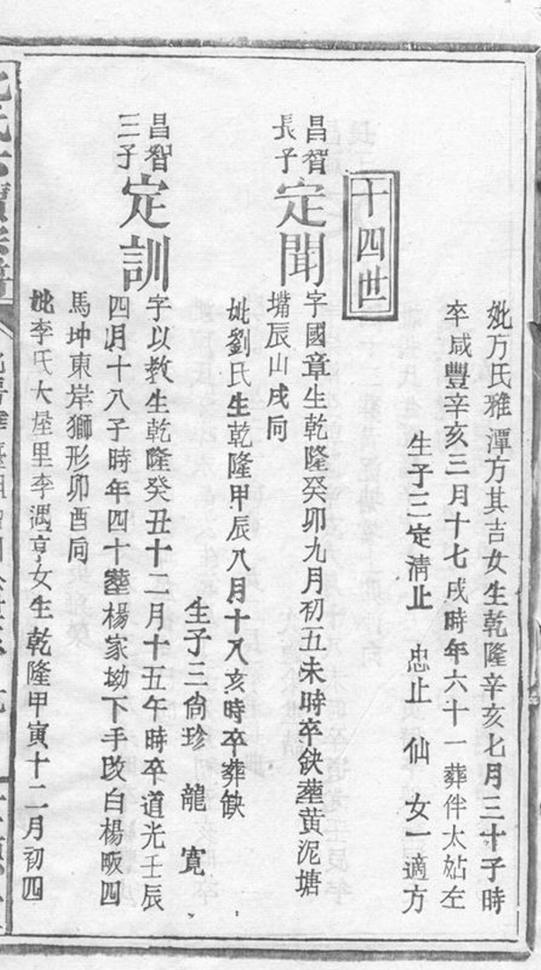 妣方氏雅潭方其吉女生乾隆辛亥七月三十子時
卒咸豐辛亥三月十七戌時年六十一葬伴太妣左
生子三定清止　忠止　仙　女一適方
十四世
昌智長子定聞字國章生乾隆癸卯九月初五未時卒缺塟黄泥塘
墈辰山戌向
妣劉氏生乾隆甲辰八月十八亥時卒葬缺
生子三尙珍　龍　寬
昌智三子定訓字以教生乾隆癸丑十二月十五午時卒道光壬辰
四月十八子時年四十塟楊家坳下手改白楊畈四
馬坤東岸獅形卯酉同
妣李氏大屋里李遇亨女生乾隆甲寅十二月初四